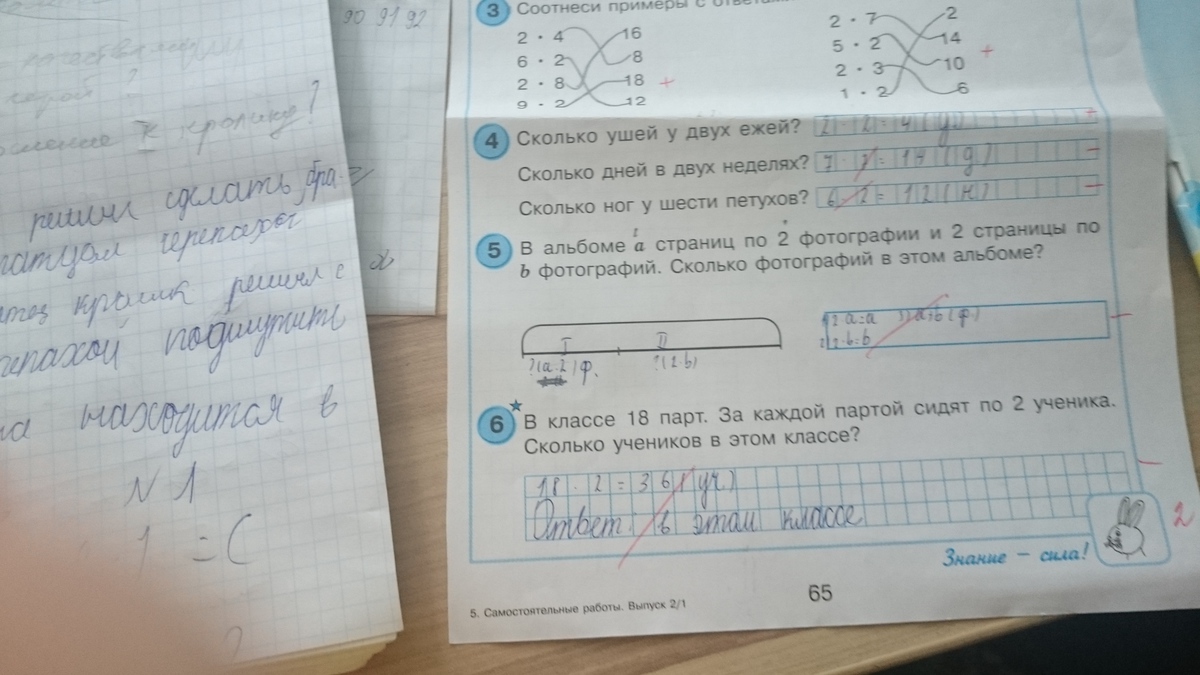 90 91 92
кролику?
решил сделать
черепахой
кролик решил с
подшутить
находится в
N 1
1 = (
3 Соотнеси примеры с ответами
2 · 4 16
6 · 2 8
2 · 8 18 +
9 · 2 12
2 · 7 2
5 · 2 14
2 · 3 10 +
1 · 2 6
4 Сколько ушей у двух ежей? 2 · 2 = 4 ( у )
Сколько дней в двух неделях? 7 · 2 = 14 ( д ) −
Сколько ног у шести петухов? 6 · 2 = 12 ( н ) −
5 В альбоме a страниц по 2 фотографии и 2 страницы по
b фотографий. Сколько фотографий в этом альбоме?
I II
?(a·2) ф. ?(2·b)
1) 2·a=a 3) a+b (ф.)
2) 2·b=b
6 В классе 18 парт. За каждой партой сидят по 2 ученика.
Сколько учеников в этом классе?
18 · 2 = 36 ( уч. )
Ответ: в этом классе
2
Знание – сила!
65
5. Самостоятельные работы. Выпуск 2/1